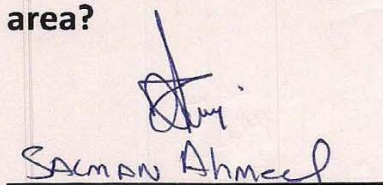 area?
SALMAN Ahmed